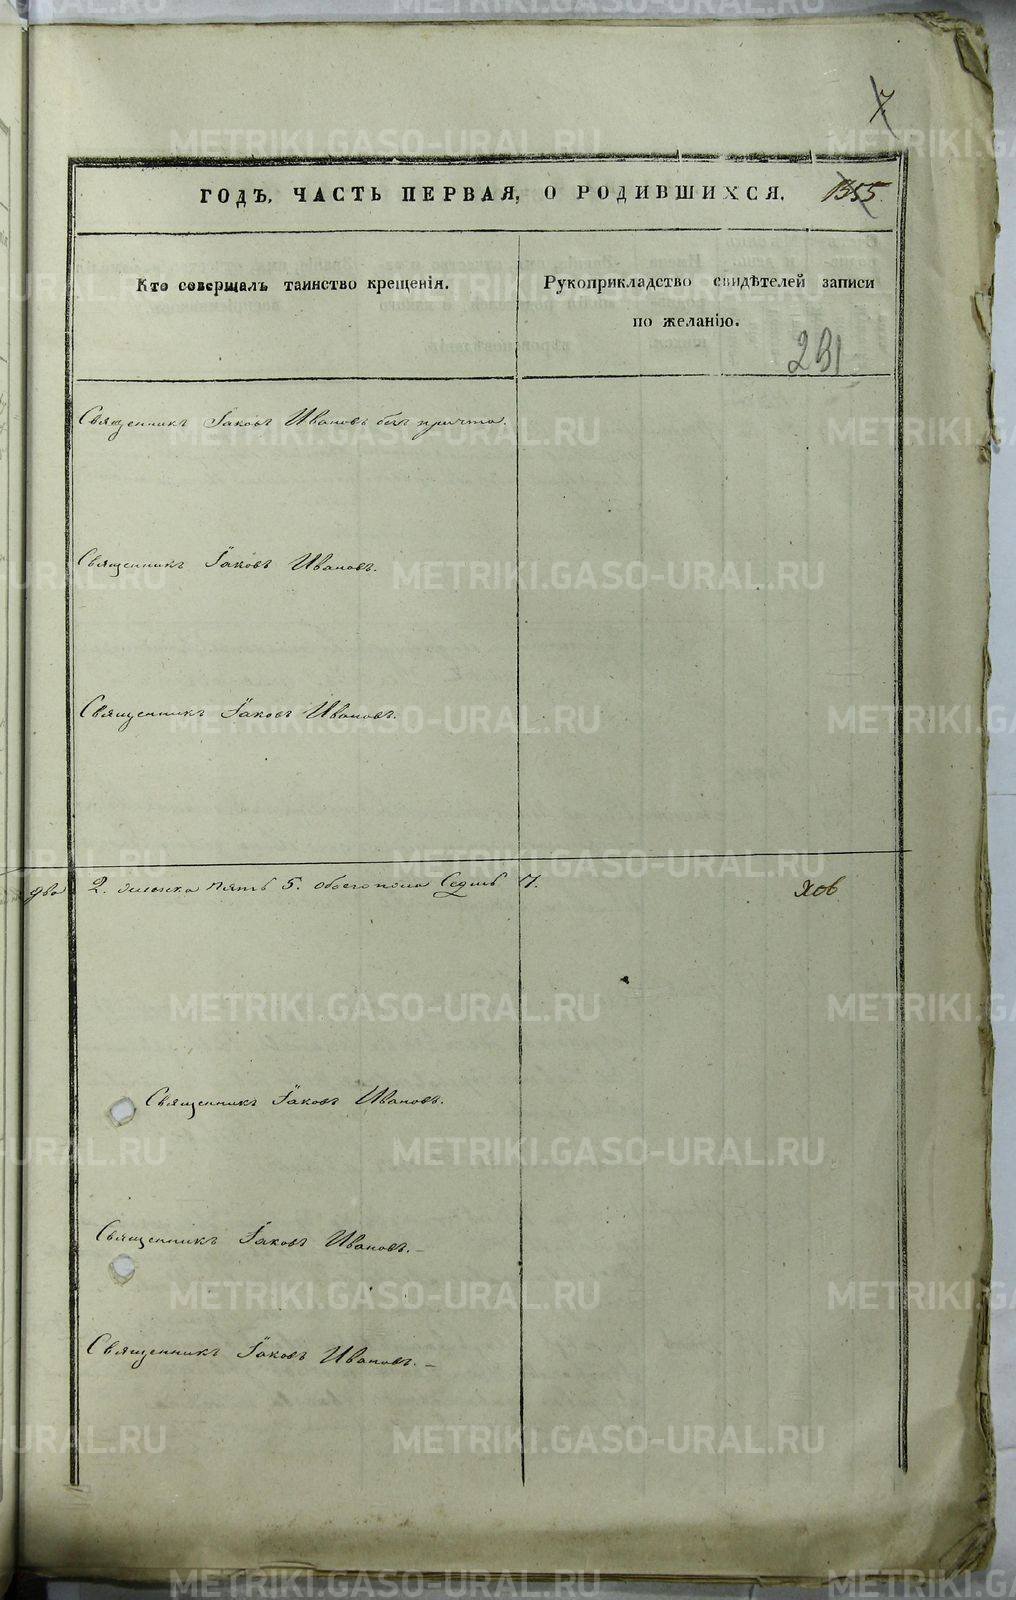 7
ГОДЪ, ЧАСТЬ ПЕРВАЯ, О РОДИВШИХСЯ. 1355.
Кто совершалъ таинство крещенія.
Рукоприкладство свидѣтелей записи
по желанію.
231
Священникъ Іаковъ Ивановъ безъ причта.
Священникъ Іаковъ Ивановъ.
Священникъ Іаковъ Ивановъ.
два 2. женска пять 5. обоего пола Седмь 7.
хов
Священникъ Іаковъ Ивановъ.
Священникъ Іаковъ Ивановъ. –
Священникъ Іаковъ Ивановъ. –
METRIKI.GASO-URAL.RU